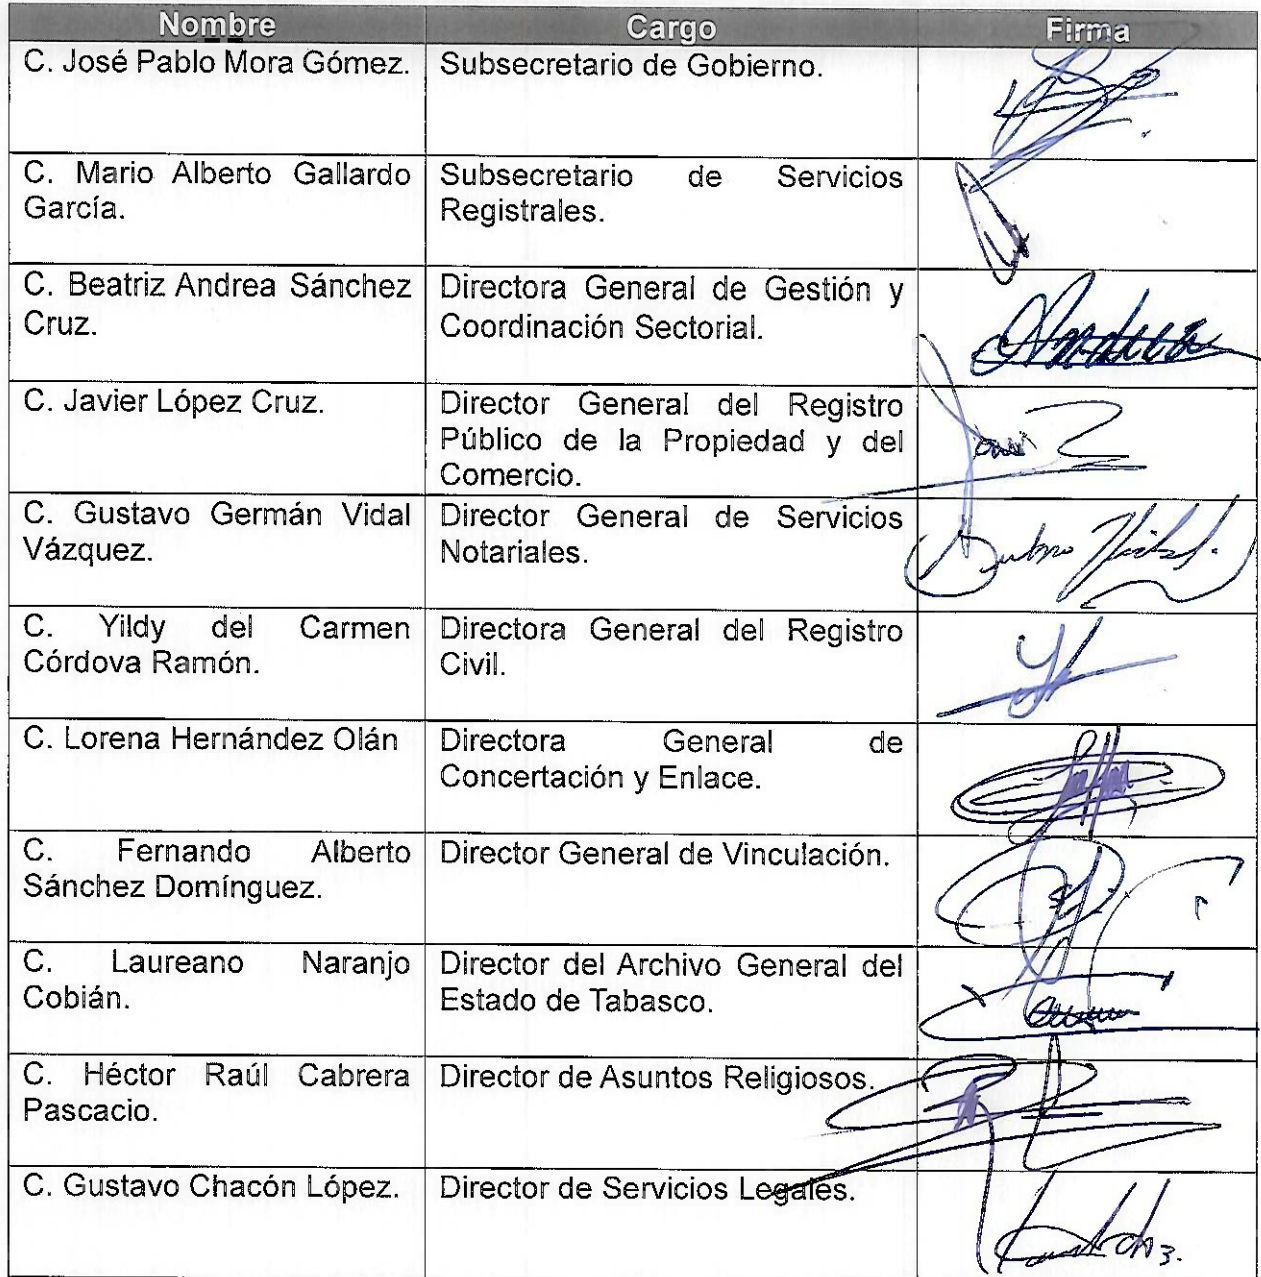 Nombre Cargo Firma
C. José Pablo Mora Gómez. Subsecretario de Gobierno.
C. Mario Alberto Gallardo Subsecretario de Servicios
García. Registrales.
C. Beatriz Andrea Sánchez Directora General de Gestión y
Cruz. Coordinación Sectorial.
Andrea
C. Javier López Cruz. Director General del Registro
Público de la Propiedad y del
Comercio.
C. Gustavo Germán Vidal Director General de Servicios
Vázquez. Notariales.
Vidal.
C. Yildy del Carmen Directora General del Registro
Córdova Ramón. Civil.
C. Lorena Hernández Olán Directora General de
Concertación y Enlace.
C. Fernando Alberto Director General de Vinculación.
Sánchez Domínguez.
C. Laureano Naranjo Director del Archivo General del
Cobián. Estado de Tabasco.
C. Héctor Raúl Cabrera Director de Asuntos Religiosos.
Pascacio.
C. Gustavo Chacón López. Director de Servicios Legales.